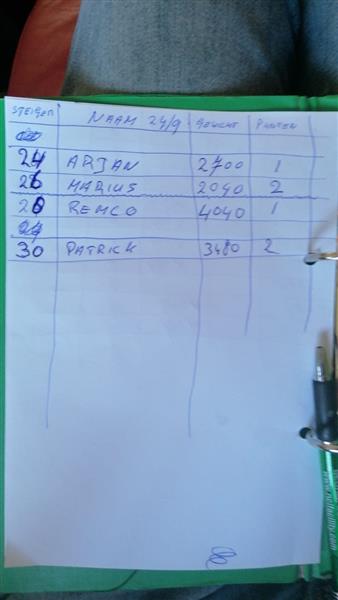 STEIGER NAAM 24/9 GEWICHT PUNTEN
24 ARJAN 2700 1
26 MARIUS 2090 2
28 REMCO 4040 1
30 PATRICK 3480 2